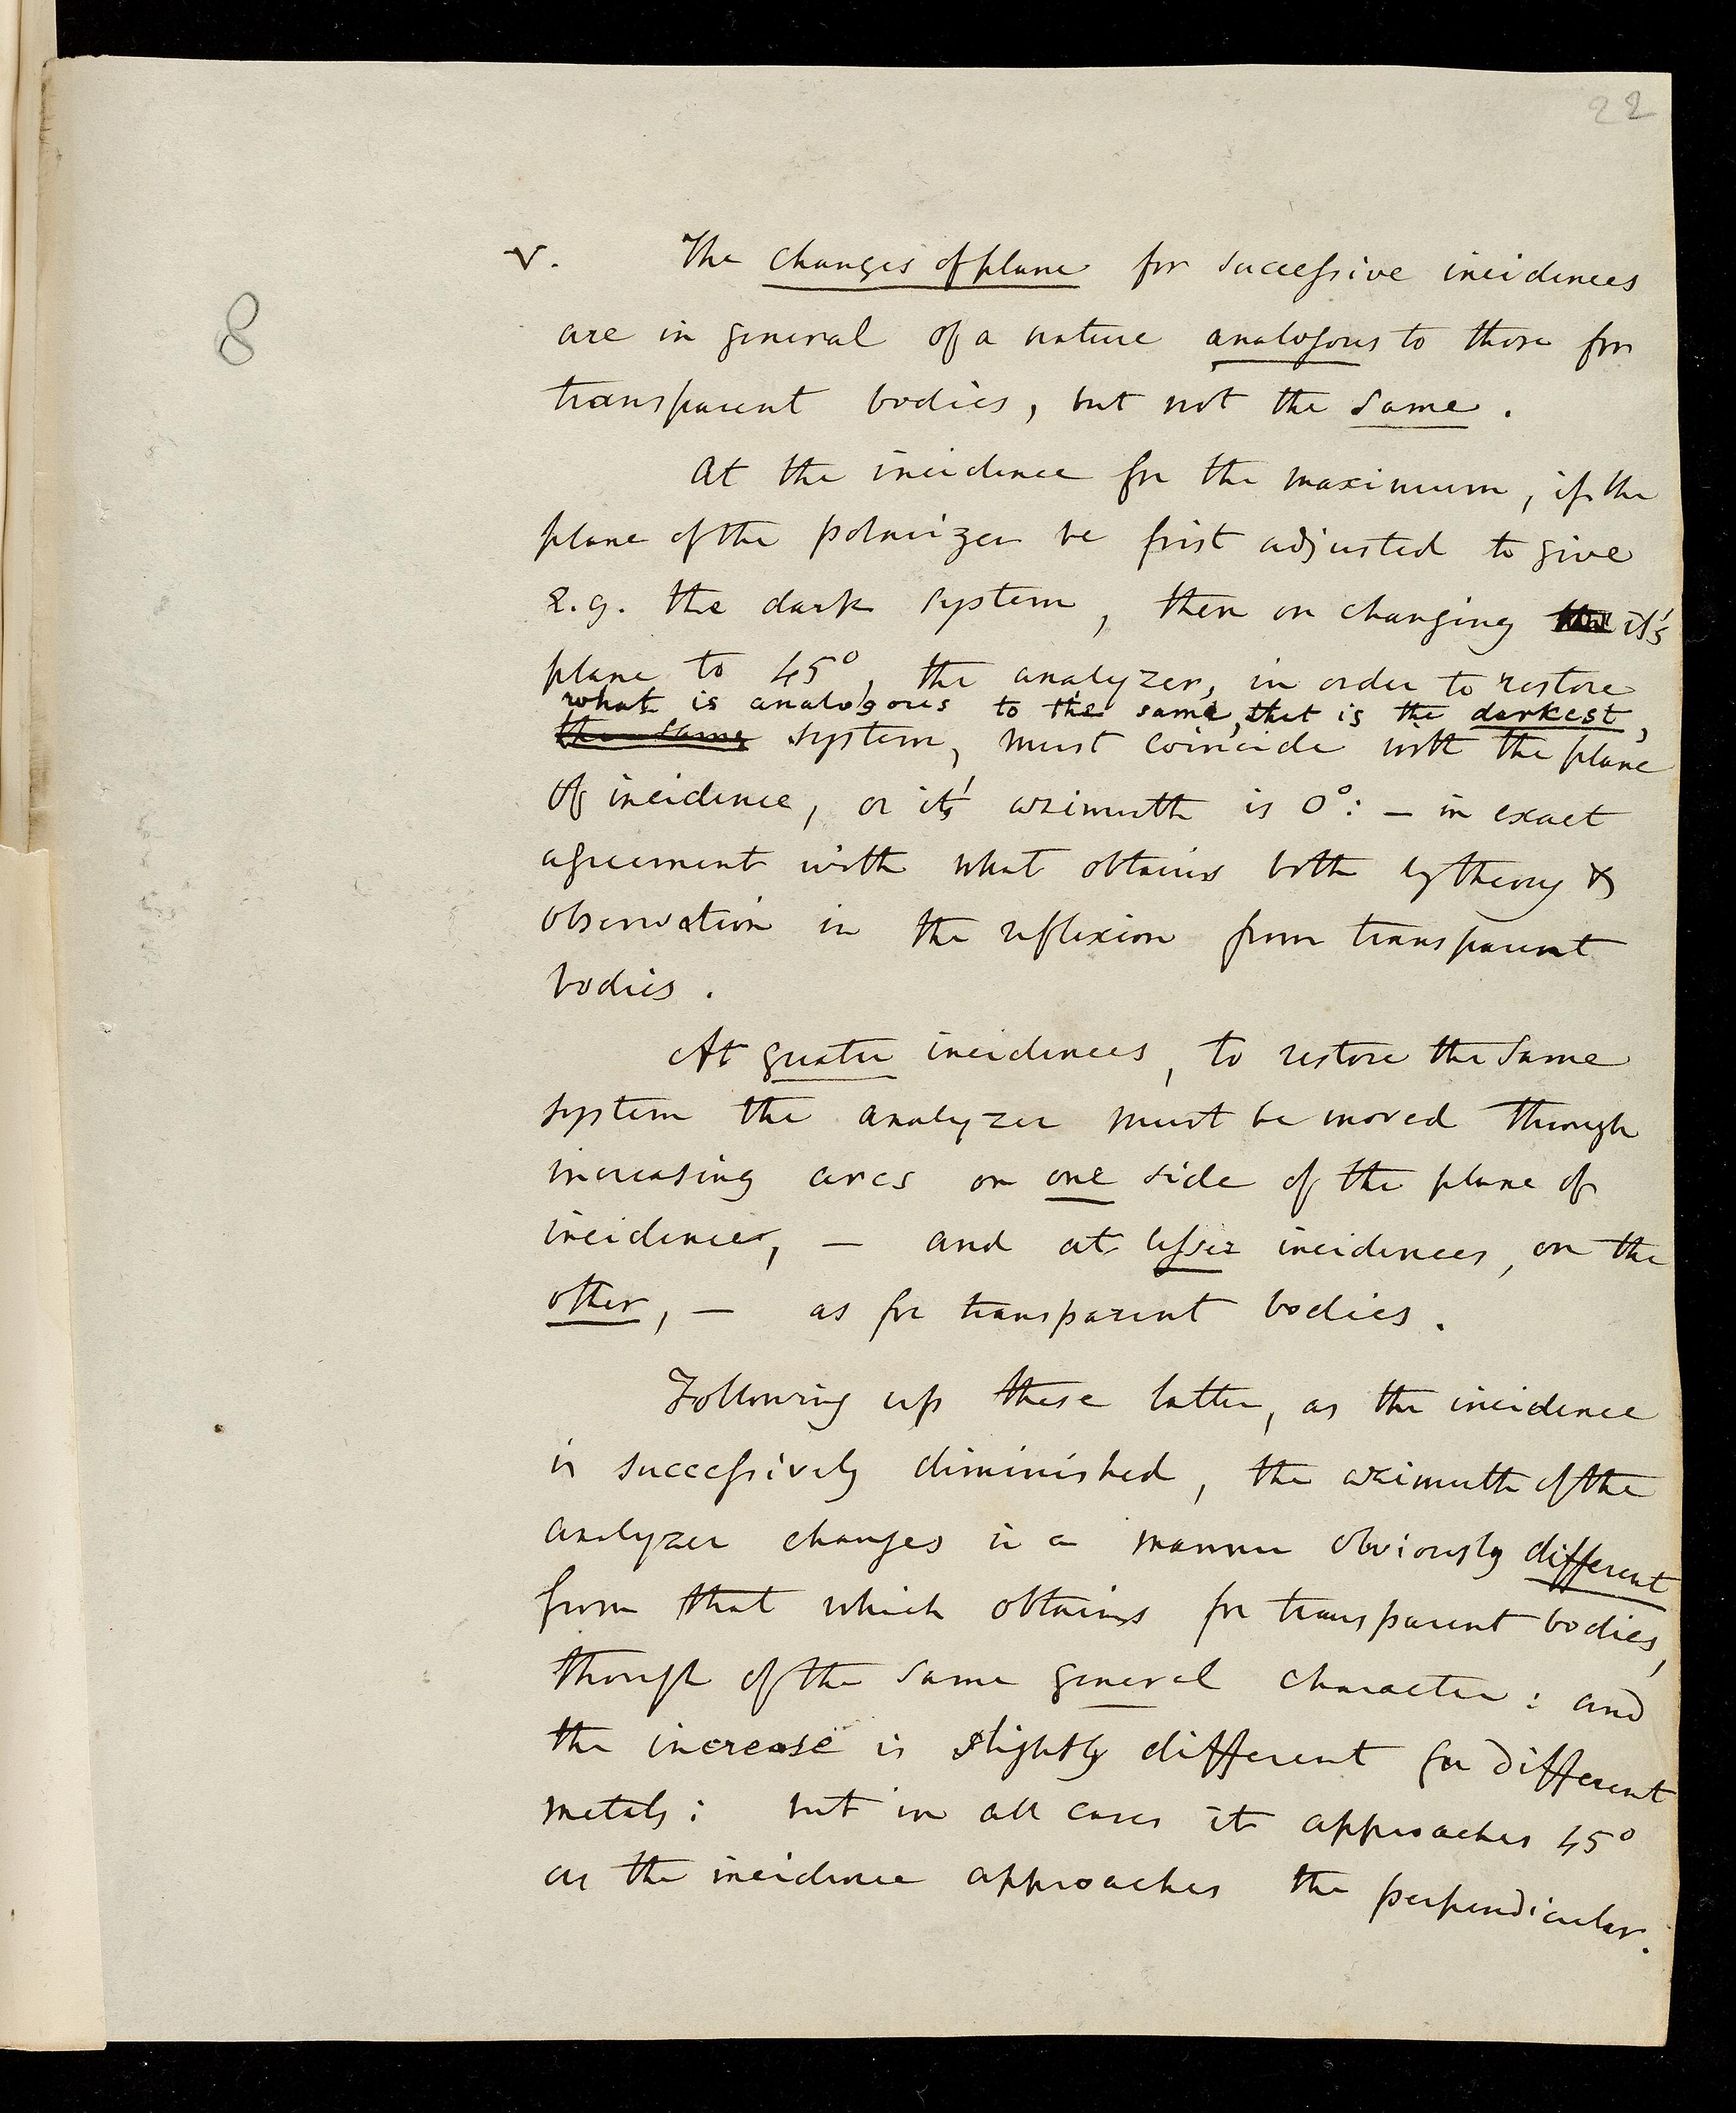 22
8
V. The changes of plane for successive incidences
are in general of a nature analogous to those for
transparent bodies, but not the same.
At the incidence for the maximum, if the
plane of the polarizer be first adjusted to give
e.g. the dark system, then on changing it's
plane to 45°, the analyzer, in order to restore
what is analogous to the same, that is the darkest,
the same system, must coincide with the plane
of incidence, or it's azimuth is 0°: — in exact
agreement with what obtains both by theory &
observation in the reflexion from transparent
bodies.
At greater incidences, to restore the same
system the analyzer must be moved through
increasing arcs on one side of the plane of
incidence, — and at lesser incidences, on the
other, — as for transparent bodies.
Following up these latter, as the incidence
is successively diminished, the azimuth of the
analyzer changes in a manner obviously different
from that which obtains for transparent bodies,
though of the same general character: and
the increase is slightly different for different
metals: but in all cases it approaches 45°
as the incidence approaches the perpendicular.